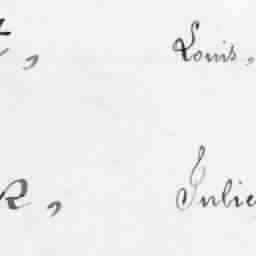 t, Louis,
R, Julie